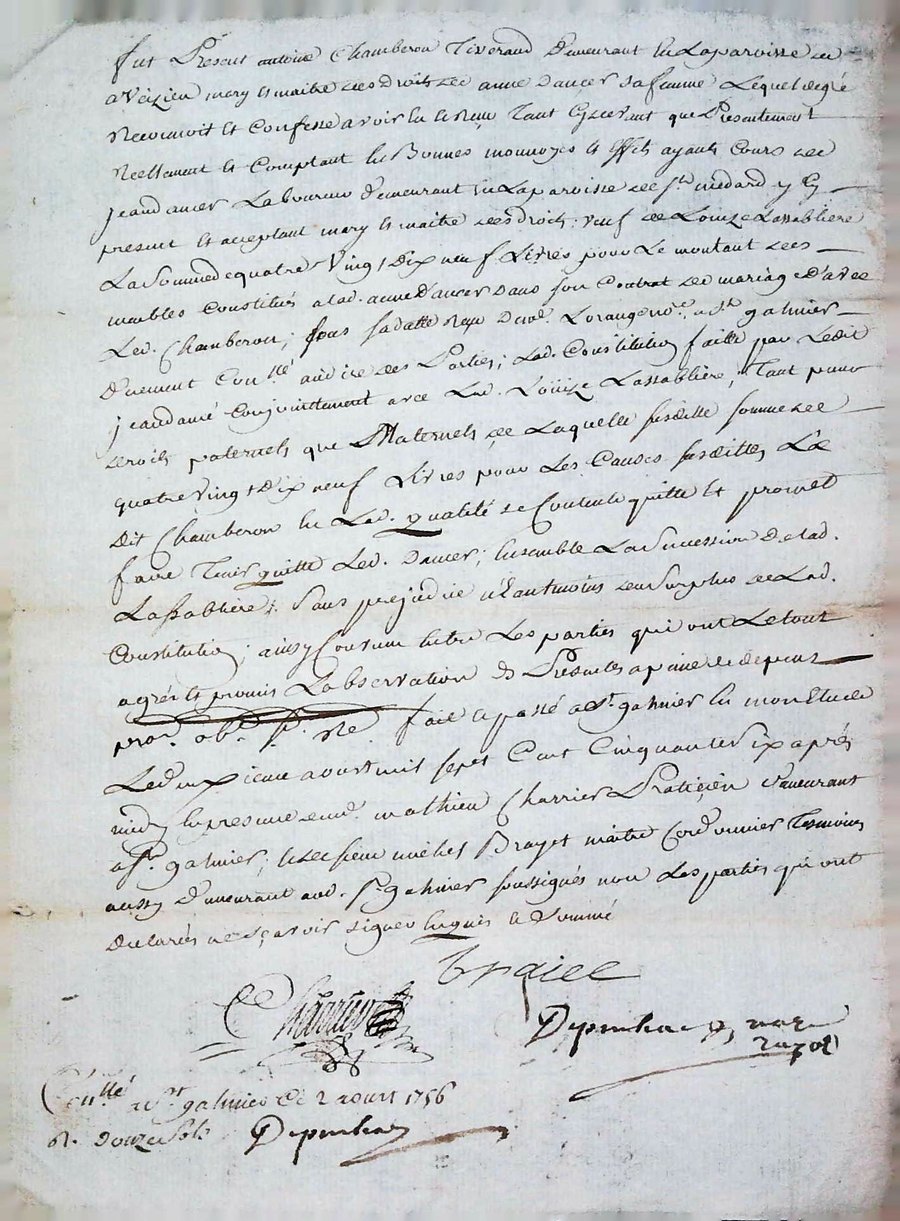 fut Present antoine Chamberon Tisserand demeurant en La parroisse de
aveizieu mary et maitre des droits de anne dancer sa femme Lequel de gré
Reconnoit et Confesse avoir eu et Reçu Tant Cy devant que Presentement
Reellement et Comptant en Bonnes monnoyes et effets ayants Cours de
jean dancer Laboureur demeurant en La parroisse de St medard y Cy
present et acceptant mary et maitre des droits veuf de Louize Lassabliere
La somme de quatre Vingt Dix neuf Livres pour Le montant des
meubles Constitués a lad. anne dancer dans son Contrat de mariage d'avec
Led. Chamberon, sous sa datte Reçu Lorange nre. a St galmier
duement Conllé au dire des Parties; Lad. Constitution faitte par Ledit
jean dancé Conjointement avec Lad. Louize Lassabliere; Tant pour
droits paternels que Maternels de Laquelle susditte somme de
quatre Vingt Dix neuf Livres pour Les Causes susdittes Le
dit Chamberon en Lad. qualité se Contente quitte et promet
faire Tenir quitte Led. dancer; Ensemble La succession de lad.
Lassabliere; sans prejudice neantmoins du surplus de Lad.
Constitution; ainsy Convenu entre Les parties qui ont Le tout
agréé et promis L'observation des Presentes a peine de depens
pron. obn. Rn. fait et passé a St. galmier en mon Etude
Le deuxieme aoust mil sept Cent Cinquante six après
midy en presence de md. mathieu Charrier Praticien demeurant
a St. galmier; et de sieur michel Brayet maitre Cordonnier Temoins
aussy demeurant aud. St galmier soussignés non Les parties qui ont
declarés ne sçavoir signer Enquis et sommé
Charrier
Conllé a St galmier Ce 2 aoust 1756
R. douze sols